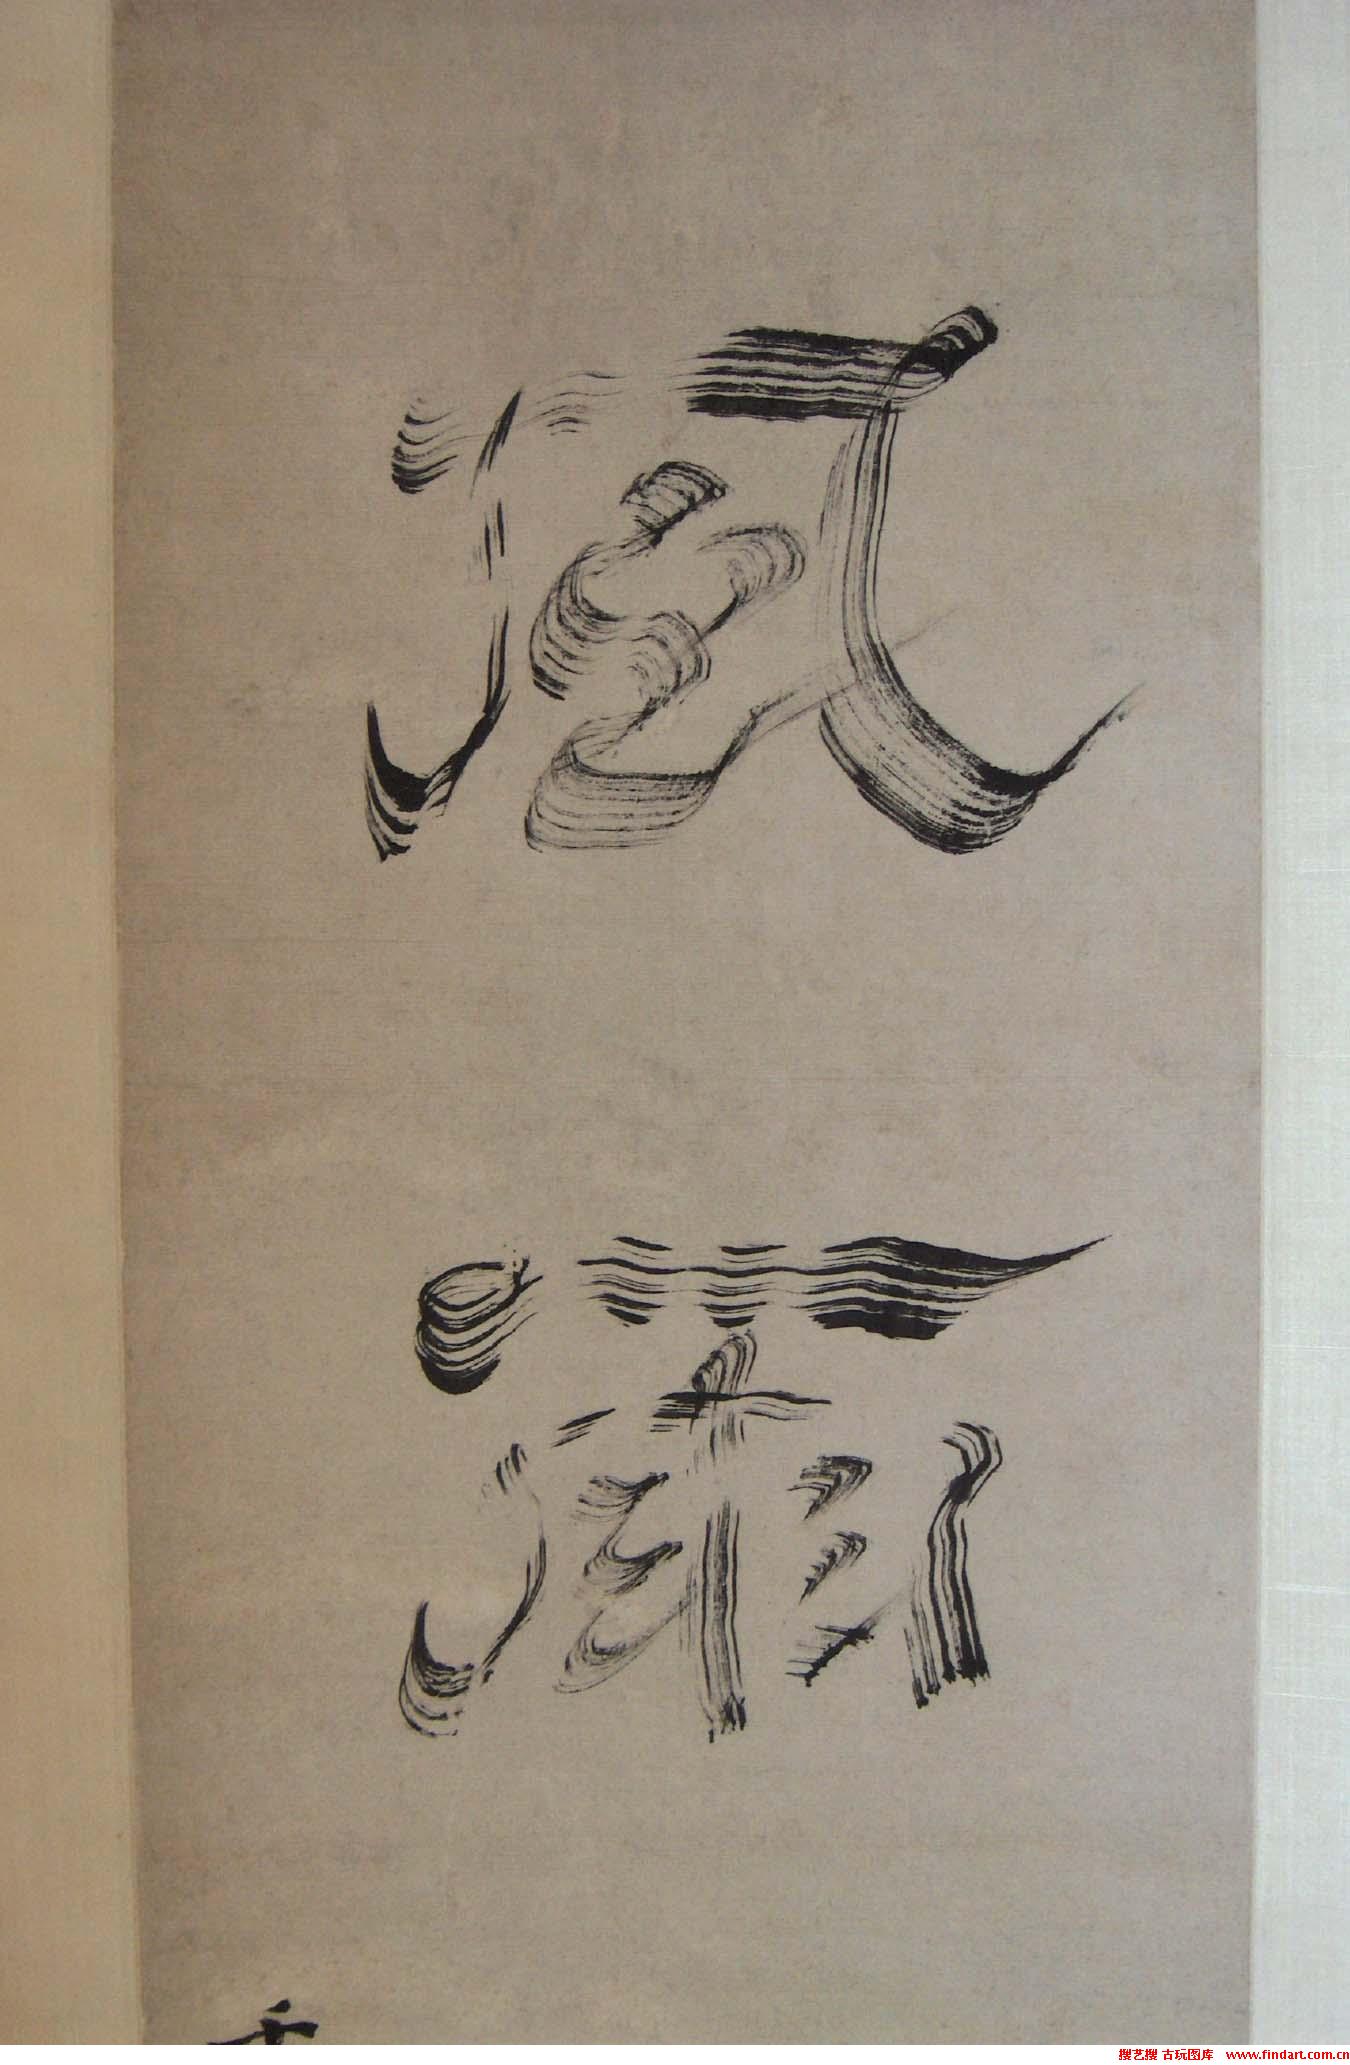 風
雨
搜艺搜 古玩图库 www.findart.com.cn